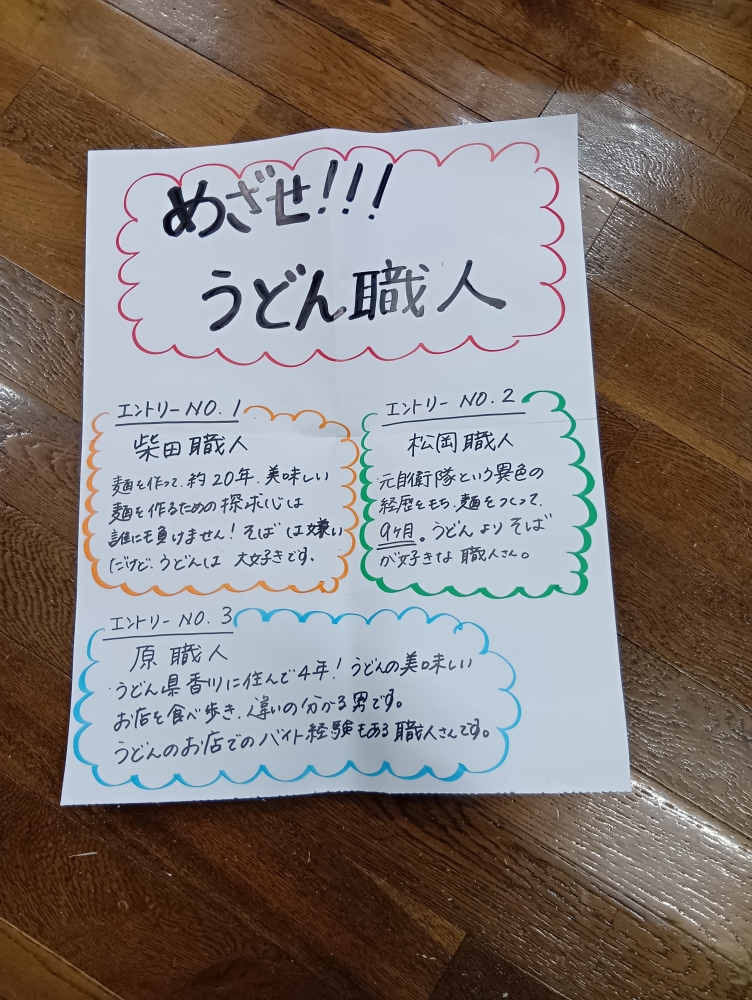 めざせ!!!
うどん職人
エントリーNO.1
柴田職人
麺を作って、約20年、美味しい
麺を作るための探求心は
誰にも負けません!そばは嫌い
だけど、うどんは 大好きです。
エントリーNO.2
松岡職人
元自衛隊という異色の
経歴をもち、麺をつくって、
9ヶ月。うどんよりそば
が好きな 職人さん。
エントリーNO.3
原 職人
うどん県香川に住んで4年!うどんの美味しい
お店を食べ歩き、違いの分かる男です。
うどんのお店でのバイト経験もある職人さんです。